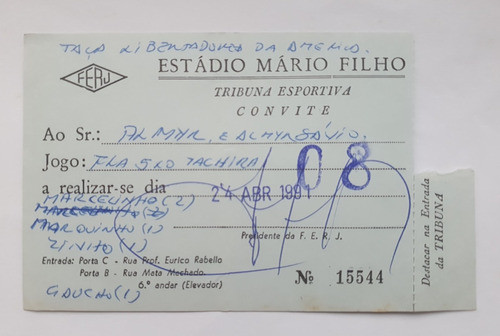 TAÇA LIBERTADORES DA AMERICA.
FERJ
ESTÁDIO MÁRIO FILHO
TRIBUNA ESPORTIVA
CONVITE
Ao Sr.: ALMYR E ALMYR SÁVIO.
Jogo: FLA 5X0 TACHIRA
08
a realizar-se dia 24 ABR 1991
MARCELINHO (2)
MARQUINHO (1)
ZINHO (1)
Presidente da F. E. R. J.
Entrada: Porta C - Rua Prof. Eurico Rabello
Porta B - Rua Mata Machado.
6.º andar (Elevador)
Nº 15544
GAUCHO (1)
Destacar na Entrada
da TRIBUNA